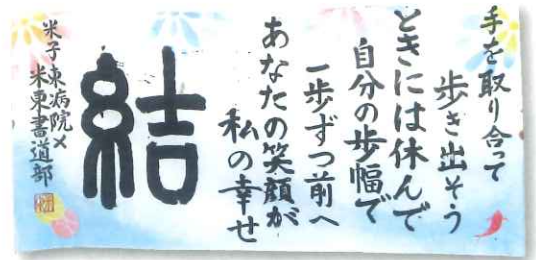 手を取り合って
歩き出そう
ときには休んで
自分の歩幅で
一歩ずつ前へ
あなたの笑顔が
私の幸せ
結
米子東病院×
米東書道部